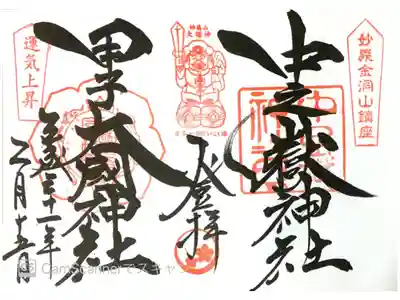 妙義金洞山鎮座
中之嶽神社
登拝
甲子大國神社
運気上昇
平成三十一年
月十五日
CamScannerでスキャン